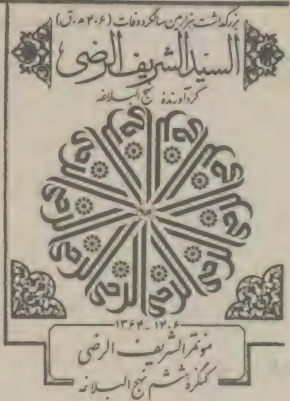 بزرگداشت هزارمین سالگرد وفات (۴۰۶ ه.ق)
السید الشریف الرضی
گردآورنده نهج البلاغه
۱۴۰۶-۱۳۶۴
مؤتمر الشریف الرضی
کنگره ششم نهج البلاغه